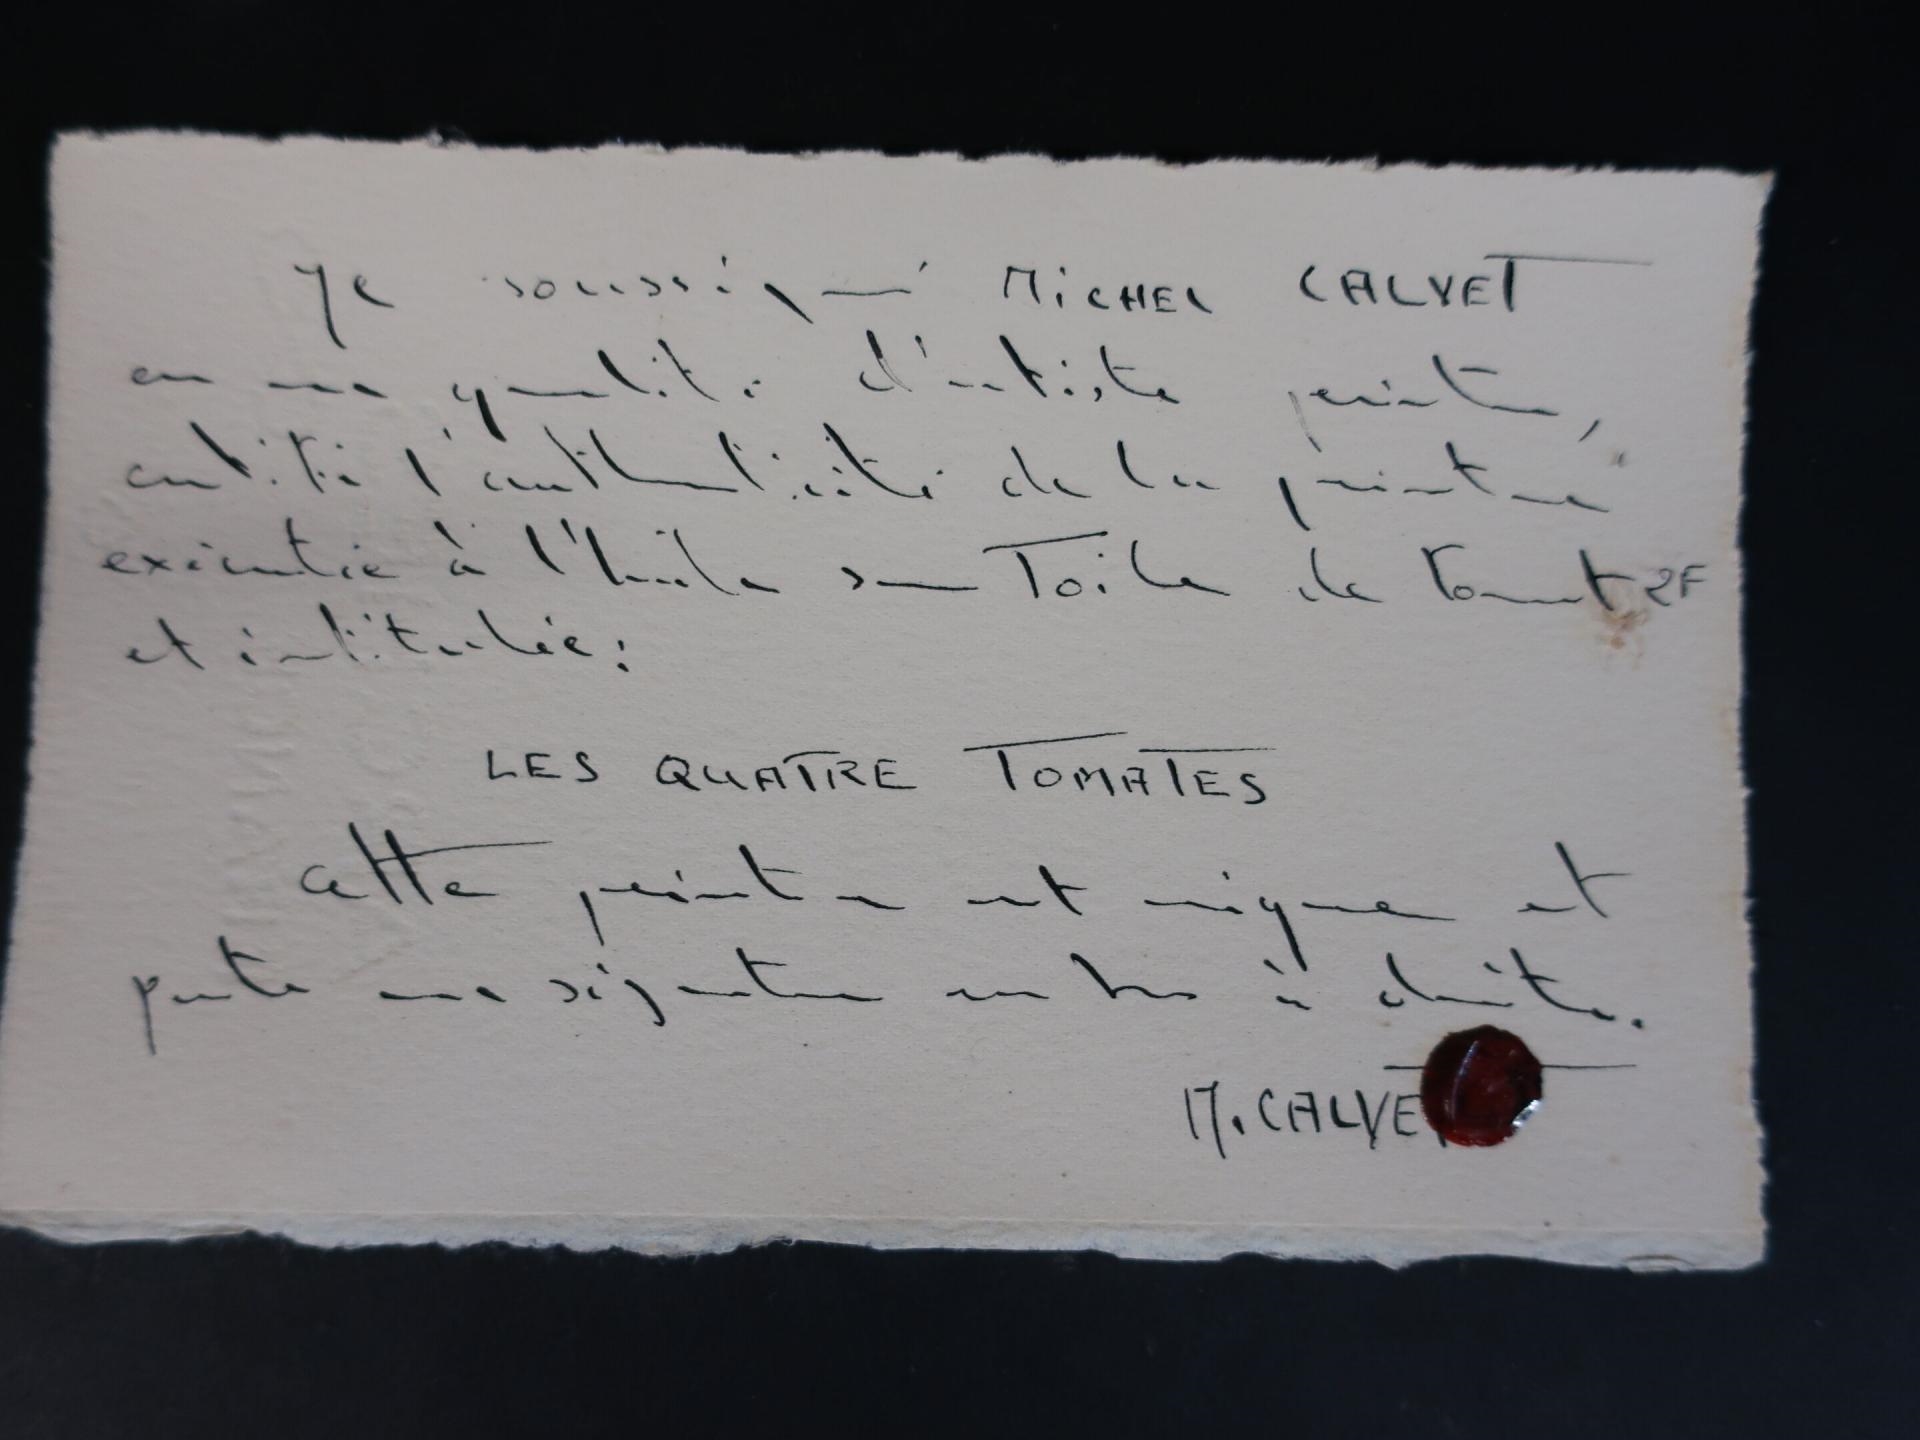 Je soussigné MICHEL CALVET
en ma qualité d'artiste peintre,
certifie l'authenticité de la peinture
exécutée à l'huile sur Toile de format 2F
et intitulée:
LES QUATRE TOMATES
Cette peinture est unique et
porte ma signature en bas à droite.
M. CALVET